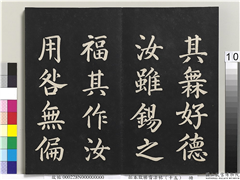 其無好德
汝雖錫之
福其作汝
用咎無偏
10